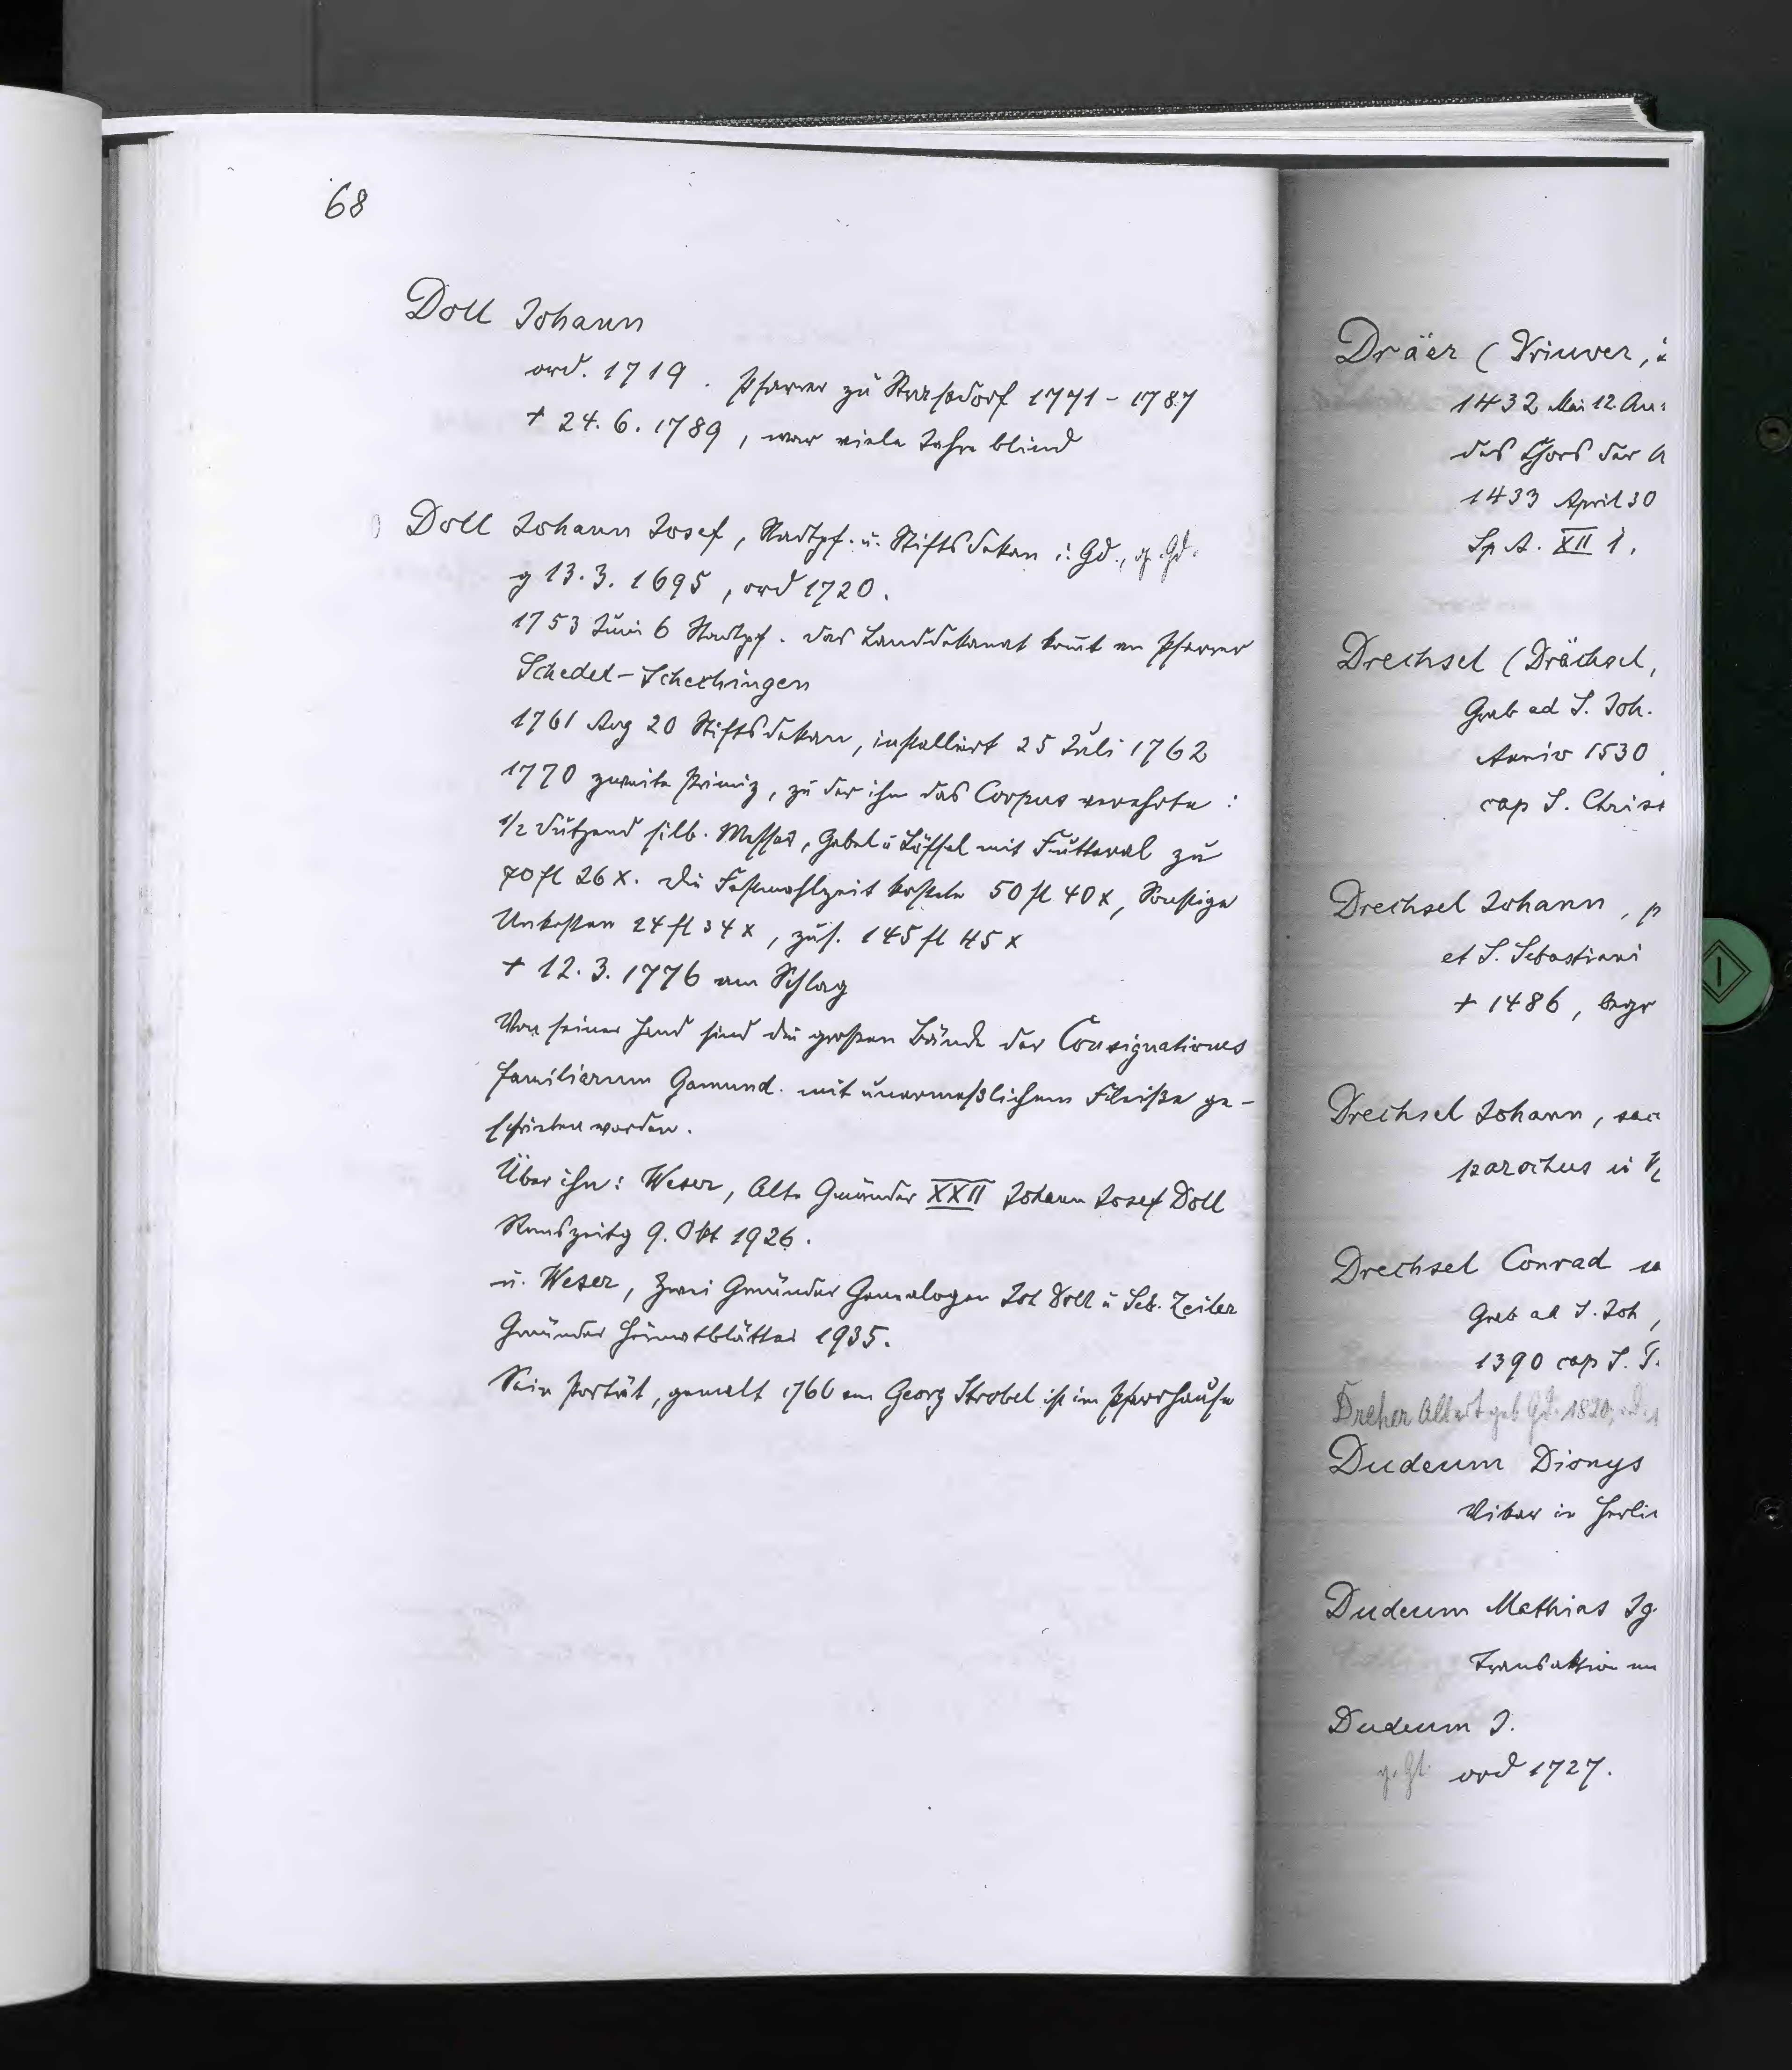 68
Doll Johann
ord. 1719. Pfarrer zu Straßdorf 1771 - 1787
† 24. 6. 1789, war viele Jahre blind
Doll Johann Josef, Stadtpf. u. Stiftsdekan i. Gd., g. Gd.
g 13. 3. 1695, ord 1720.
1753 Juni 6 Stadtpf. das Landdekanat komt an Pfarrer
Schedel-Schechingen
1761 Aug 20 Stiftsdekan, installiert 25 Juli 1762
1770 zweite Primiz, zu der ihm das Corpus verehrte :
1/2 Dutzend silb. Messer, Gabel u Löffel mit Futteral zu
70 fl 26 x. die Festmahlzeit kostete 50 fl 40 x, Sonstige
Unkosten 24 fl 34 x, zus. 145 fl 45 x
† 12. 3. 1776 am Schlag
Von seiner Hand sind die großen Bände der Consignationes
familiarum Gamund. mit unermeßlichem Fleiße ge-
schrieben worden.
Über ihn: Weser, Alte Gmünder XXII Johann Josef Doll
Remszeitg 9. Okt 1926.
u. Weser, Zwei Gmünder Genealogen Joh Doll u Seb. Zeiler
Gmünder Heimatblätter 1935.
Sein Porträt, gemalt 1766 von Georg Strobel ist im Pfarrhause
Dräer (Vriuver,
1432 Mai 12. An
des Chors der
1433 April 30
Sp. A. XII 1.
Drechsel (Drächsel,
Grab ad S. Joh.
Anniv 1530
cap S. Christ
Drechsel Johann, p
et S. Sebastiani
† 1486, begr
Drechsel Johann, sac
parochus in
Drechsel Conrad
Grab ad S. Joh,
1390 cap S. T.
Dreher Albert geb Gd. 1820,
Dudeum Dionys
Vikar in Herli
Dudeum Mathias Ig.
Transaktion
Dudeum J.
g. Gd. ord 1727.